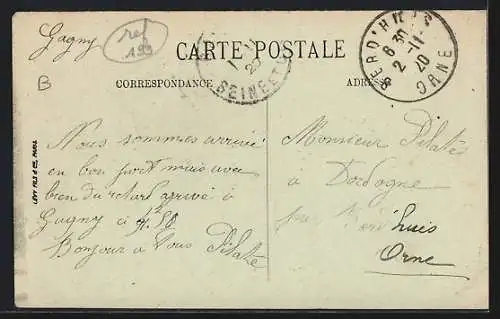 Gagny
ref
199
CARTE POSTALE
CORRESPONDANCE
ADRESSE
B
SEINE ET
20
BERD'HUIS
8 30
2 -11
20
ORNE
LEVY FILS & Cie, PARIS
Nous sommes arrivé
en bon port mais avec
bien du retard agrivé à
Gagny ci
Bonjour à Vous Pilate
Monsieur Pilate
à Dordogne
par Berd'huis
Orne